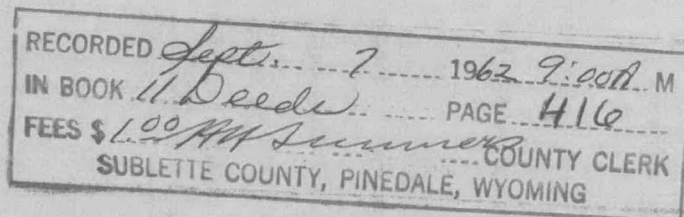 RECORDED Sept. 7 1962 9:00A M
IN BOOK 11 Deeds PAGE 416
FEES $1.00 COUNTY CLERK
SUBLETTE COUNTY, PINEDALE, WYOMING